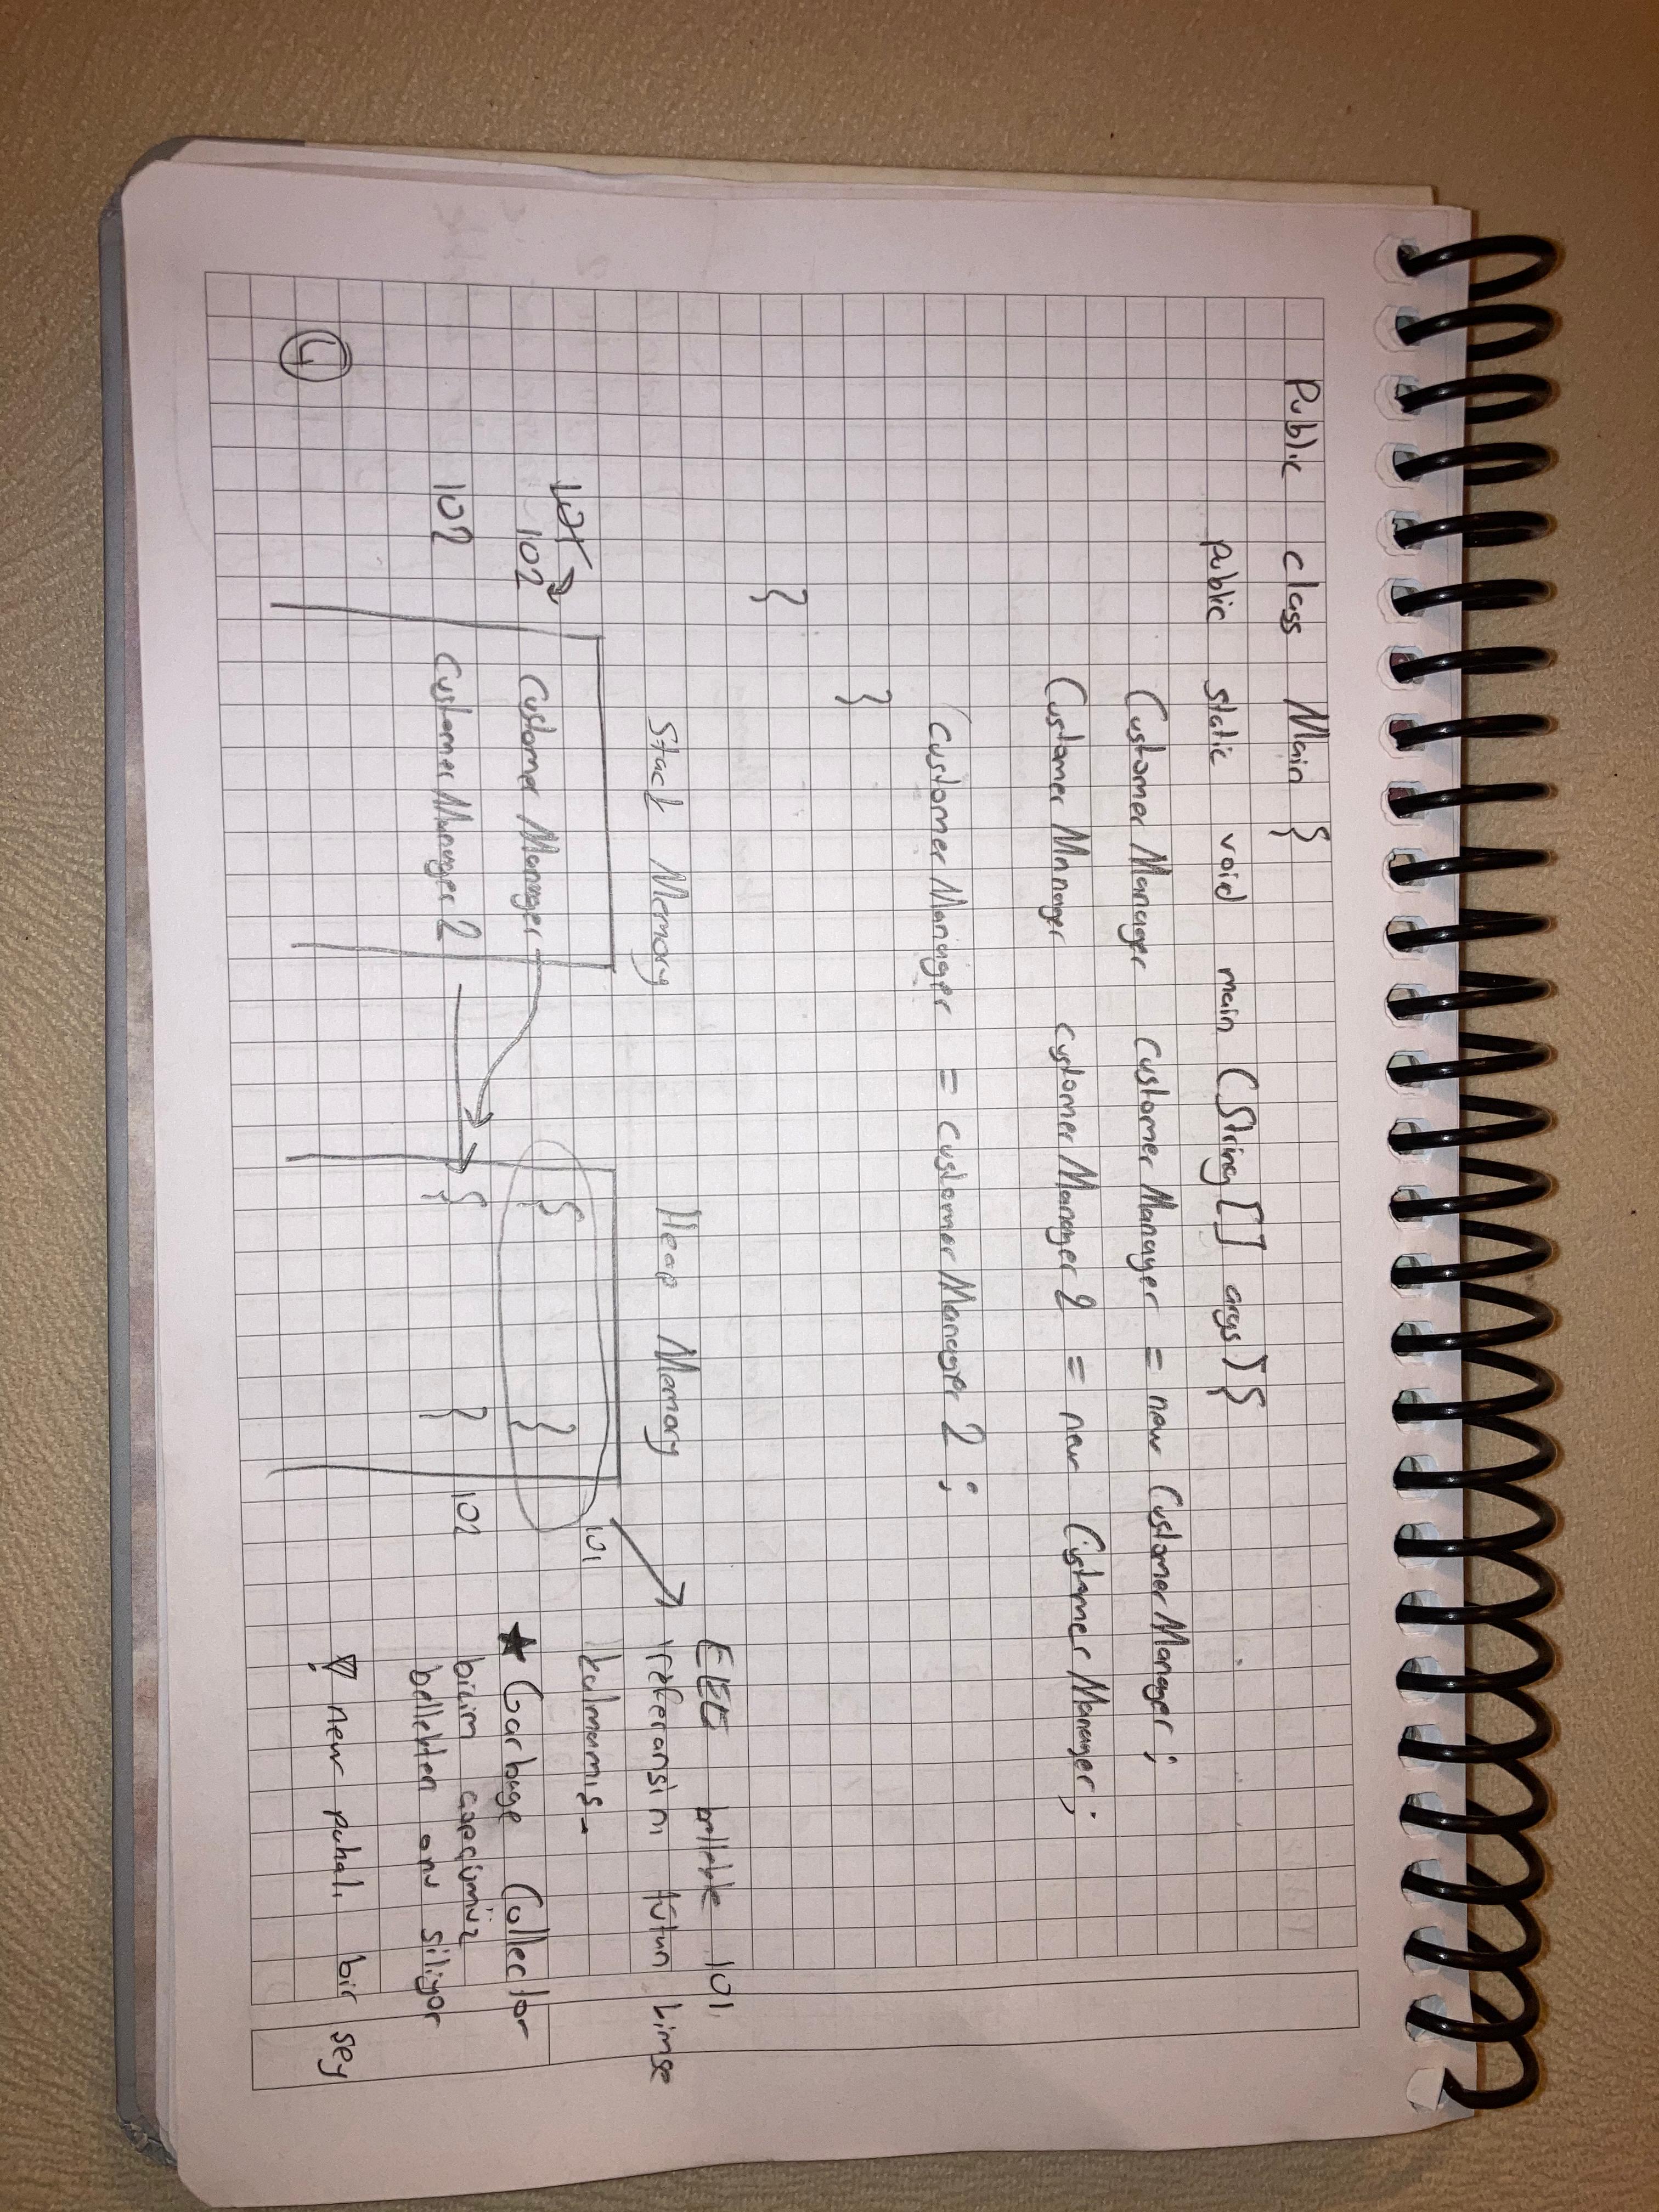 Public class Main {
public static void main (String [] args) {
Customer Manager customer Manager = new Customer Manager ;
Customer Manager customer Manager 2 = new Customer Manager ;
customer Manager = customer Manager 2 ;
}
}
Stack Memory
Heap Memory
101
102 Customer Manager
102 Customer Manager 2
{ } 101
{ } 102
EEE bellekte 101
referansini tutun kimse
kalmamış
★ Garbage Collector
bizim çöpçümüz
bellekten onu siliyor
! new pahalı bir şey
4